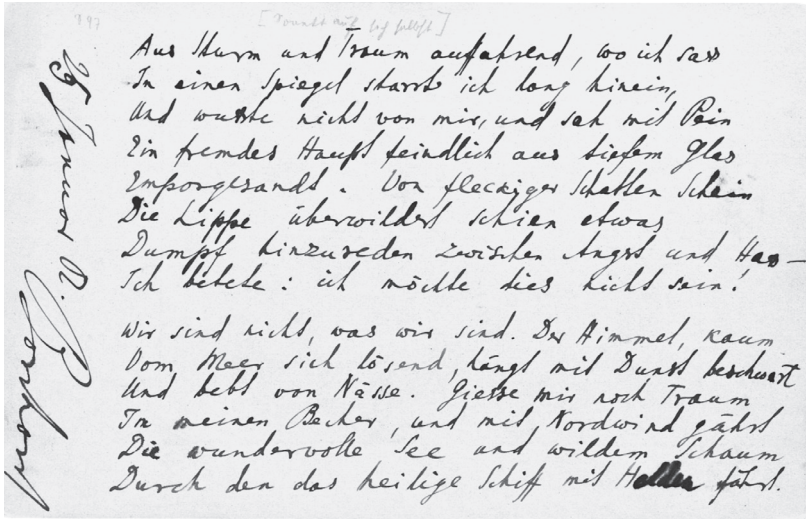 [Sonett auf sich selbst]
Aus Sturm und Traum auffahrend, wo ich sass
In einen Spiegel starrt ich lang hinein,
Und wusste nicht von mir, und sah mit Pein
Ein fremdes Haupt feindlich aus tiefem Glas
Emporgesandt. Von fleckiger Schatten Schein
Die Lippe überwildert schien etwas
Dumpf hinzureden zwischen Angst und Hass—
Ich betete: ich möchte dies nicht sein!
Wir sind nicht, was wir sind. Der Himmel, kaum
Vom Meer sich lösend, hängt mit Dunst beschwert
Und bebt von Nässe. Giesse mir noch Traum
In meinen Becher, und mit Nordwind gährt
Die wundervolle See und wildem Schaum
Durch den das heilige Schiff mit Helden fährt.
25 Januar R. Borchardt